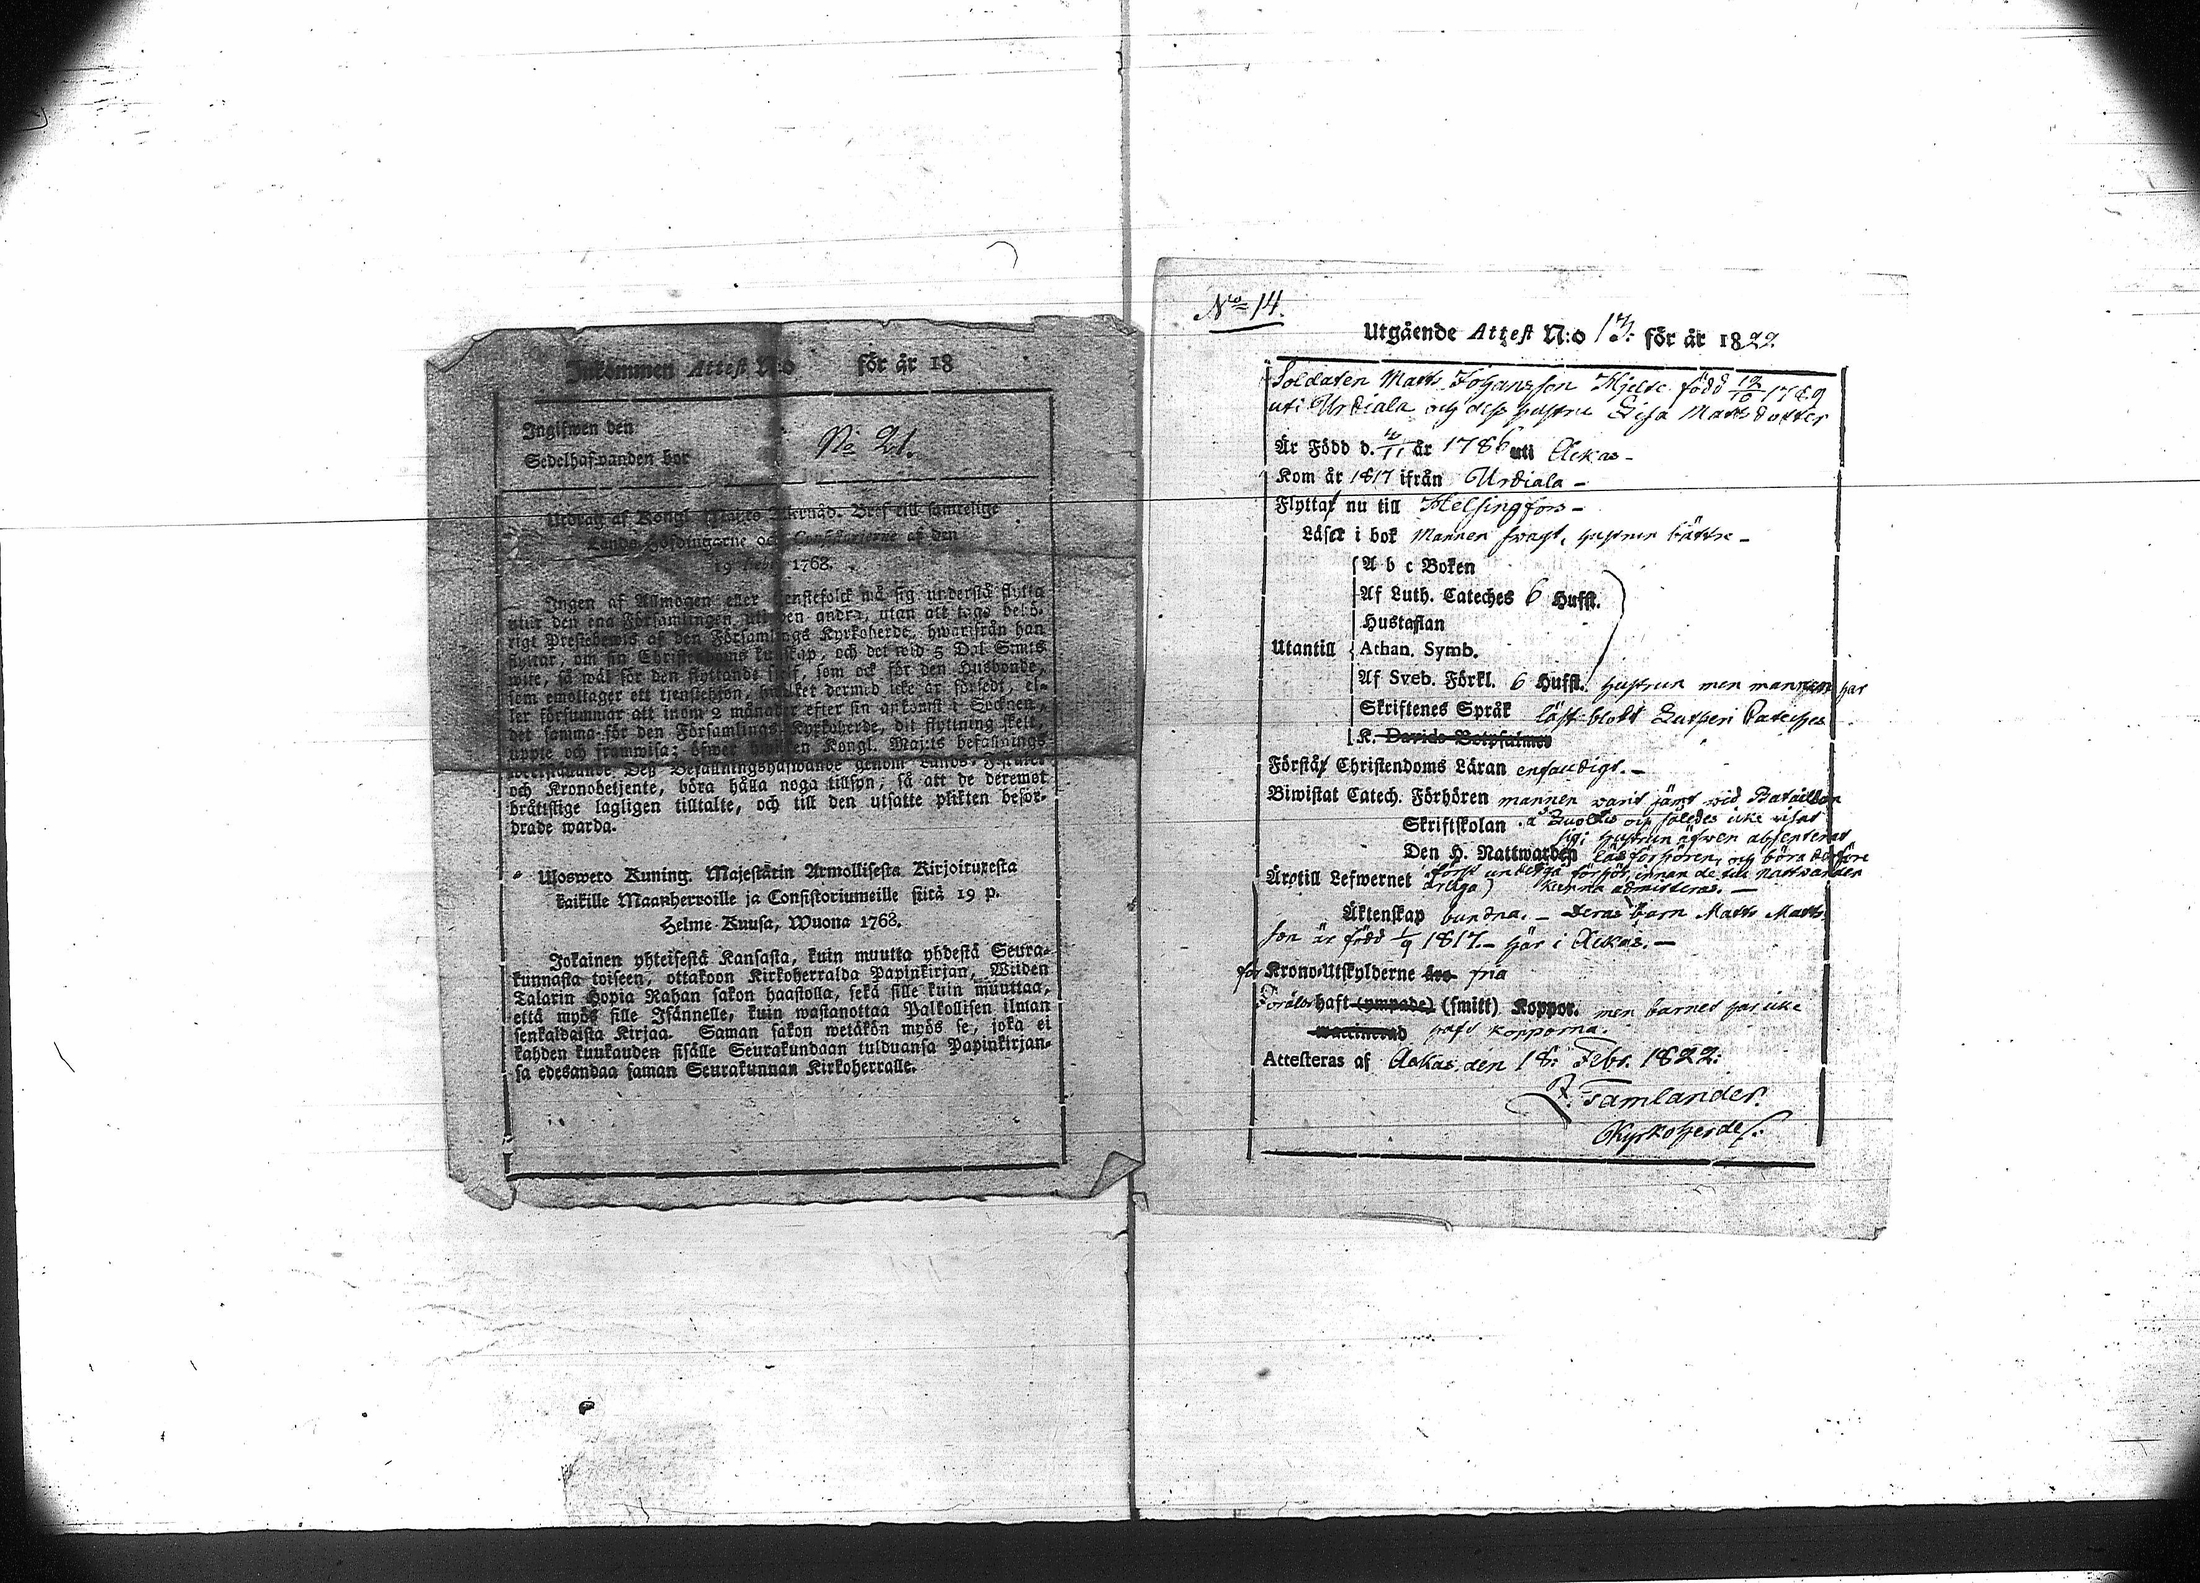 Inkommen Attest N:o för år 18
Ingifwen den
Sedelhafwanden bor
No 21.
Utdrag af Kongl. Maj:ts Allernåd. Bref till samtelige
Lands-Höfdingarne och Consistorierne af den
19 1768.
Ingen af Allmogen eller Tjenstefolck må sig understå flytta
utur den ena Församlingen uti den andra, utan att taga behö-
rigt Prestebewis af den Församlings Kyrkoherde, hwarifrån han
flyttar, om sin Christendoms kunskap, och det wid 5 Dal. S:mts
wite, så wäl för den flyttande sjelf, som ock för den Husbonde,
som emottager ett tjenstehjon, hwilket dermed icke är försedt, el-
ler försummar att inom 2 månader efter sin ankomst i Socknen,
det samma för den Församlings Kyrkoherde, dit flyttning skett,
uppte och framwisa; öfwer hwilken Kongl. Maj:ts befallnings
Dess Befallningshafwande genom Lands-Fiskaler
och Kronobetjente, böra hålla noga tillsyn; så att de deremot
bråttslige lagligen tilltalte, och till den utsatte plikten befor-
drade warda.
Uloswerto Kuning. Majestätin Armollisesta Kirjoituxesta
kaikille Maanherroille ja Consistoriumeille siitä 19 p.
Helme-Kuusa, Wuona 1768.
Jokainen yhteisestä Kansasta, kuin muutta yhdestä Seura-
kunnasta toiseen, ottakoon Kirkoherralda Papinkirjan, Wiiden
Talarin Hopia Rahan sakon haastolla, sekä sille kuin muuttaa,
että myös sille Isännelle, kuin wastanottaa Palkollisen ilman
senkaldaista Kirjaa. Saman sakon wetäkön myös se, joka ei
kahden kuukauden sisälle Seurakundaan tulduansa Papinkirjan-
sa edesandaa saman Seurakunnan Kirkoherralle.
No 14.
Utgående Attest N:o 13. för år 1822
Soldaten Matts Johansson Hjelte född 12/10 1789
uti Urdiala och dess hustru Lisa Mattsdotter
Är Född d. 4/11 år 1786 uti Ackas -
Kom år 1817 ifrån Urdiala -
Flytta nu till Helsingfors -
Läser i bok Mannen swagt, hustrun bättre -
A b c Boken
Af Luth. Cateches 6 Hufst.
Hustaflan
Utantill Athan. Symb.
Af Sveb. Förkl. 6 Hufst. hustrun men mannen har
Skriftenes Språk läst blott Lutheri Cateches
K. Davids Botpsalmer
Förstå Christendoms Läran enfaudigt. -
Biwistat Catech. Förhören mannen warit jämt wid Bataillon
Skriftskolan och således icke wisat
sig; hustrun äfwen absenterat
Den H. Nattwarden läsförhören, och böra derföre
först undergå förhör, innan de till Nattwarden
Äro till Lefwernet ärliga) kunna admitteras. -
Äktenskap bundna. - Deras barn Matts Matts
son är född 1/9 1817 - här i Ackas. -
for Krono-Utskylderne äro fria
Föräldr haft (ympade) (smitt) Koppor. men barnet har icke
waccinerad haft kopporna.
Attesteras af Ackas den 18. Febr. 1822:
Z. Tamlander.
Kyrkoherde.